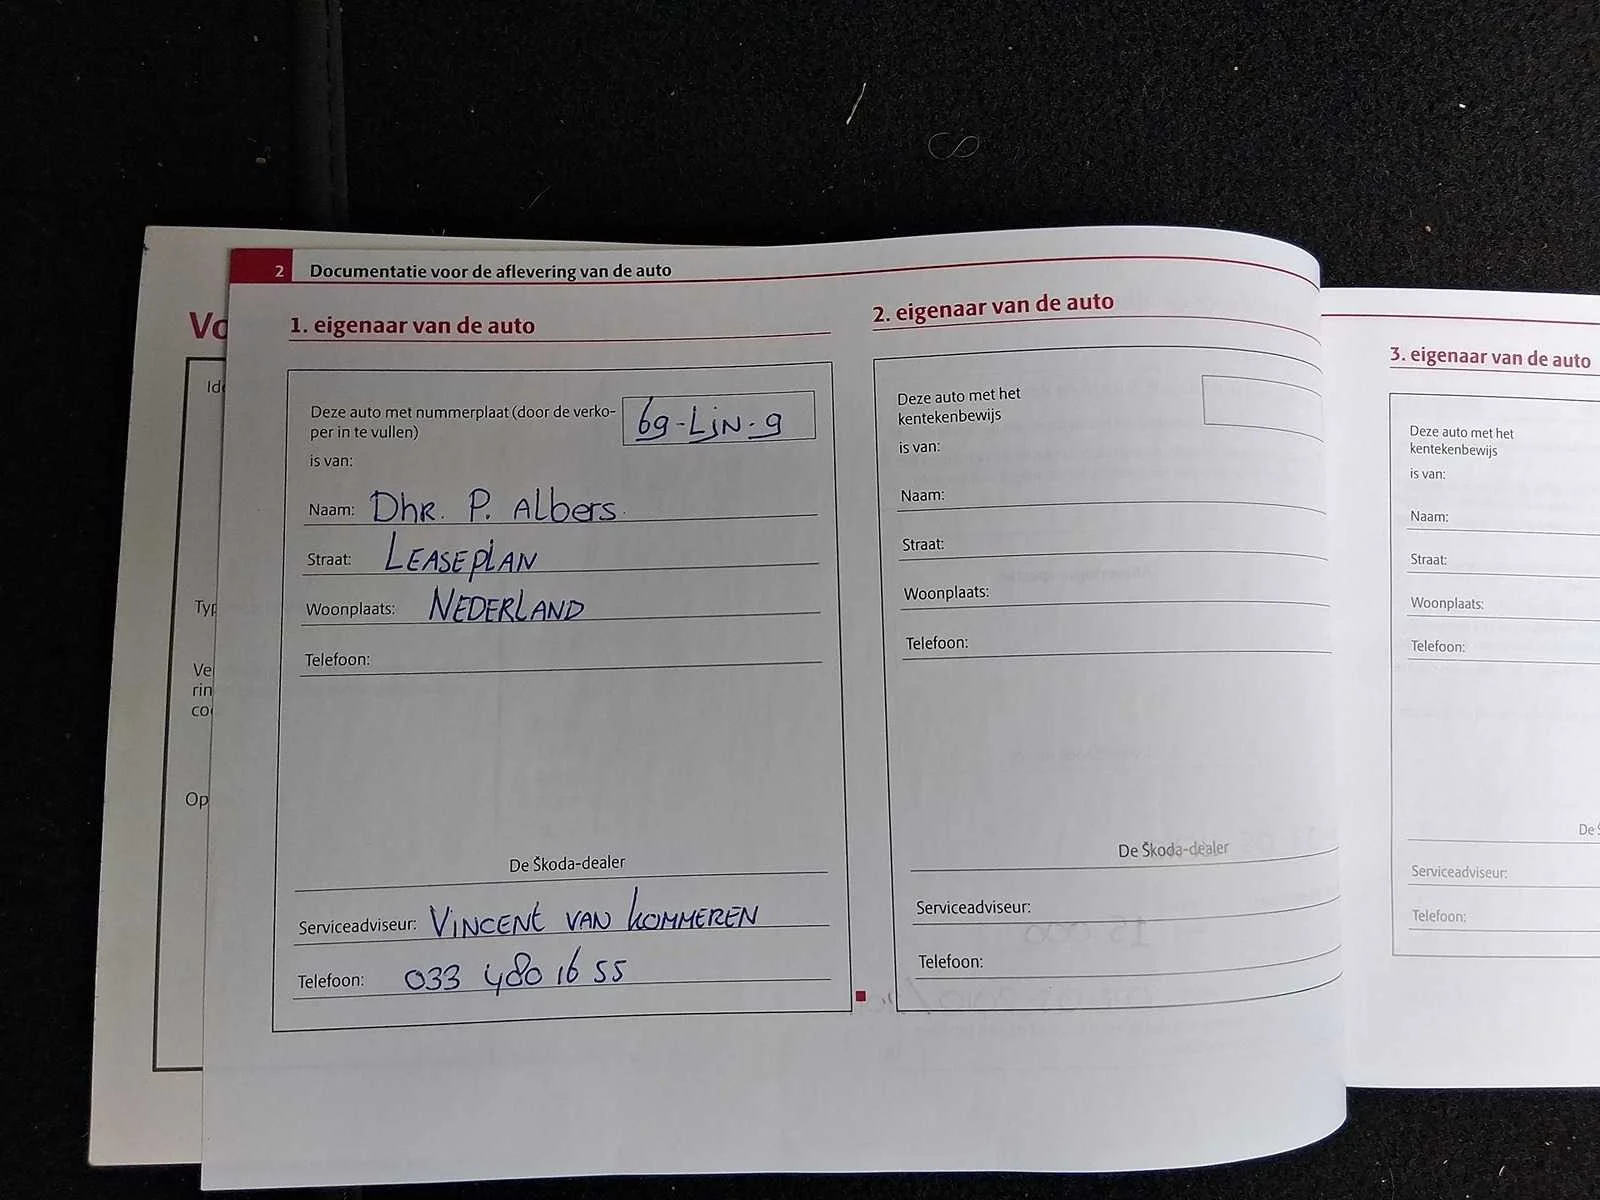 2 Documentatie voor de aflevering van de auto
Vo
Ide
Typ
Ve
rin
co
Op
1. eigenaar van de auto
Deze auto met nummerplaat (door de verko-
per in te vullen)
69-LJN-9
is van:
Naam: Dhr. P. Albers
Straat: LEASEPLAN
Woonplaats: NEDERLAND
Telefoon:
De Škoda-dealer
Serviceadviseur: VINCENT VAN KOMMEREN
Telefoon: 033 480 16 55
2. eigenaar van de auto
Deze auto met het
kentekenbewijs
is van:
Naam:
Straat:
Woonplaats:
Telefoon:
De Škoda-dealer
Serviceadviseur:
Telefoon:
3. eigenaar van de auto
Deze auto met het
kentekenbewijs
is van:
Naam:
Straat:
Woonplaats:
Telefoon:
De Š
Serviceadviseur:
Telefoon: